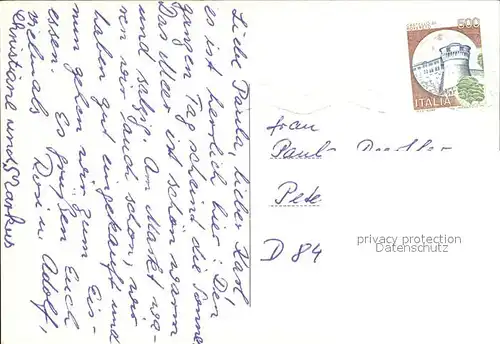 Liebe Paula, lieber Karl,
es ist herrlich hier. Den
ganzen Tag scheind die Sonne
Das Meer ist schön warm
und salzig. Am Markt wa-
ren wir auch schon, wir
haben gut eingekauft und
nun gehen wir zum Eis-
essen. Es grüßen Euch
vielmals Rosi u. Adolf,
Christiane und Markus
CASTELLO DI
ROVERETO
500
ITALIA
Frau
D 84
privacy protection
Datenschutz